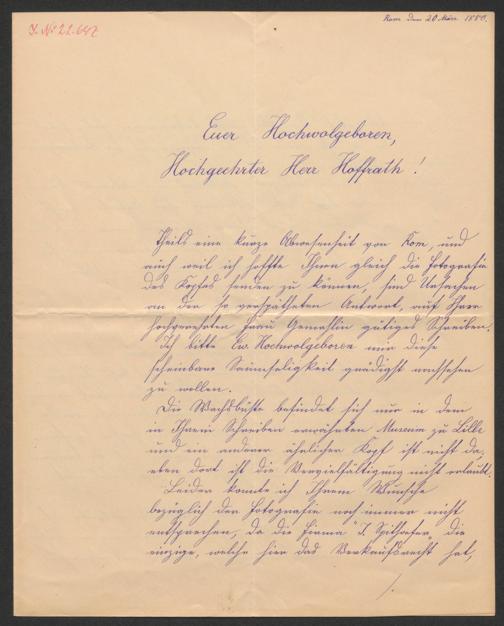 J. No 22.647
Rom den 20 März 1880.
Euer Hochwolgeboren,
Hochgeehrter Herr Hoffrath!
Theils eine kurze Abwesenheit von Rom, und
auch weil ich hoffte Ihnen gleich die Fotografie
des Kopfes senden zu können, sind Ursachen
an der so verspäteten Antwort, auf Ihrer
hochverehrten Frau Gemahlin gütiges Schreiben.
Ich bitte Ew. Hochwolgeboren mir diese
scheinbare Saumseligkeit gnädigst nachsehen
zu wollen.
Die Wachsbüste befindet sich nur in dem
in Ihrem Schreiben erwähnten Museum zu Lille
und ein anderer ähnlicher Kopf ist nicht da,
eben dort ist die Vervielfältigung nicht erlaubt.
Leider konnte ich Ihrem Wunsche
bezüglich der Fotografie noch immer nicht
entsprechen, da die Firma "J. Spithoefer", die
einzige, welche hier das Verkaufsrecht hat,